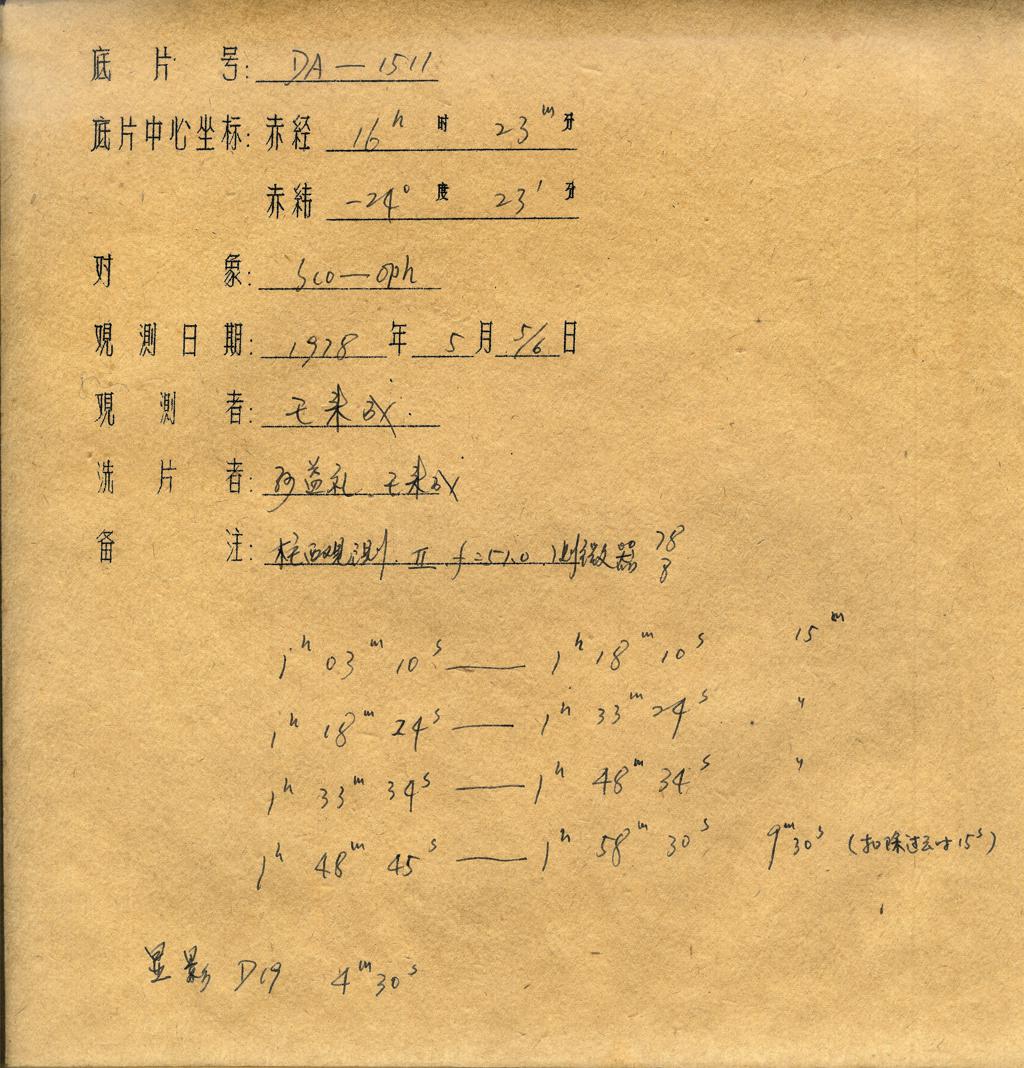 底片号: DA—1511
底片中心坐标: 赤经 16ʰ 时 23ᵐ 分
赤纬 -24° 度 23′ 分
对象: Sco—oph
观测日期: 1978 年 5 月 5/6 日
观测者: 王来成.
洗片者: 孙益礼 王来成
备注: 观测. II f=51.0 测微器 78
1ʰ 03ᵐ 10ˢ — 1ʰ 18ᵐ 10ˢ 15ᵐ
1ʰ 18ᵐ 24ˢ — 1ʰ 33ᵐ 24ˢ 〃
1ʰ 33ᵐ 34ˢ — 1ʰ 48ᵐ 34ˢ 〃
1ʰ 48ᵐ 45ˢ — 1ʰ 58ᵐ 30ˢ 9ᵐ30ˢ (扣除过云时15ˢ)
显影 D19 4ᵐ30ˢ